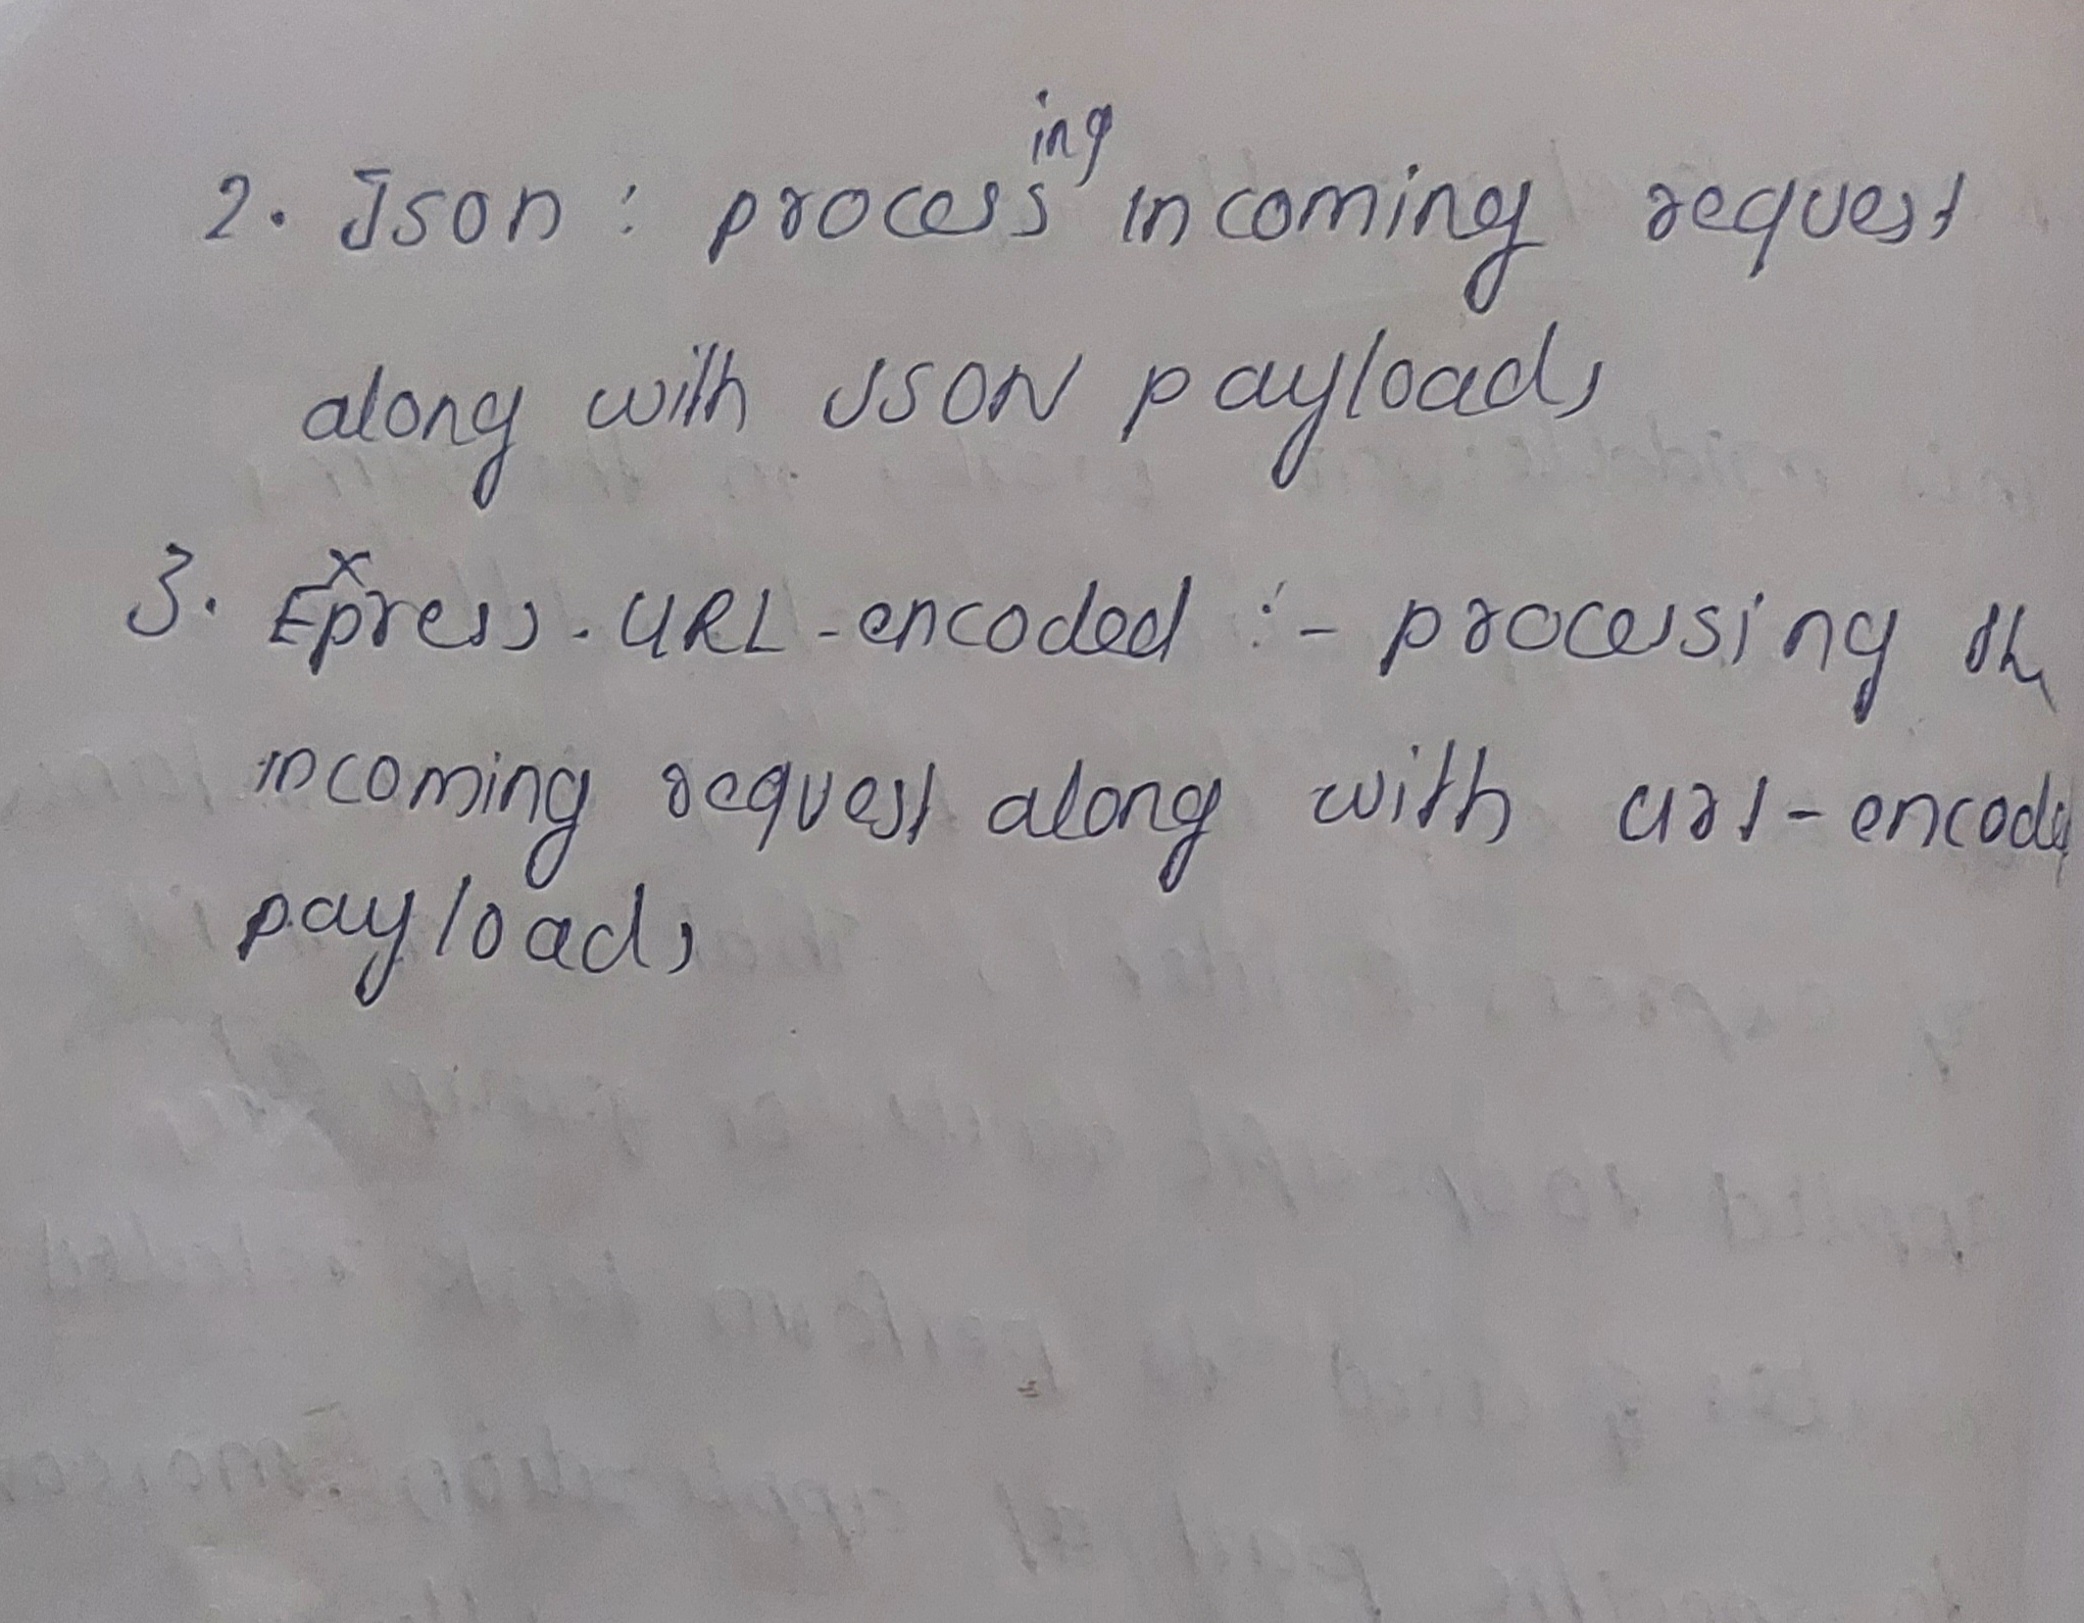 2. Json : processing incoming request
along with JSON payloads
3. Express. URL-encoded :- processing the
incoming request along with url-encoded
payloads